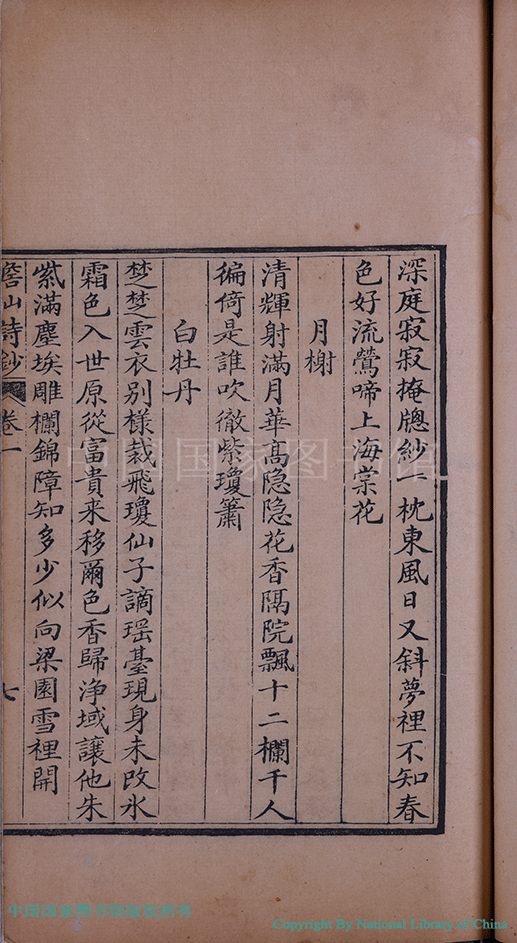 深庭寂寂掩牕紗一枕東風日又斜夢裡不知春
色好流鶯啼上海棠花
月榭
清輝射滿月華高隐隐花香隔院飄十二欄干人
徧倚是誰吹徹紫瓊簫
白牡丹
楚楚雲衣别様裁飛瓊仙子謫瑶臺現身未改氷
霜色入世原從富貴来移爾色香歸浄域讓他朱
紫滿塵埃雕欄錦障知多少似向梁園雪裡開
山詩鈔 卷一 七
中国国家图书馆
中国国家图书馆版权所有
Copyright By National Library of China